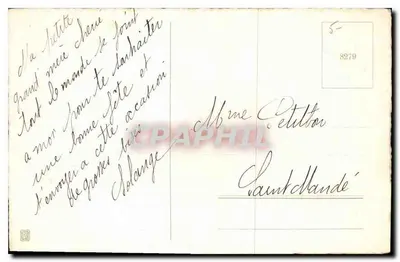 Ma petite
grand mère chérie
tout le monde se joint
a moi pour te souhaiter
une bonne fête et
t'envoyer a cette occasion
de grosses bises
Solange
5-
8279
Mme Petitbon
Saint Mandé
CPAPHIL